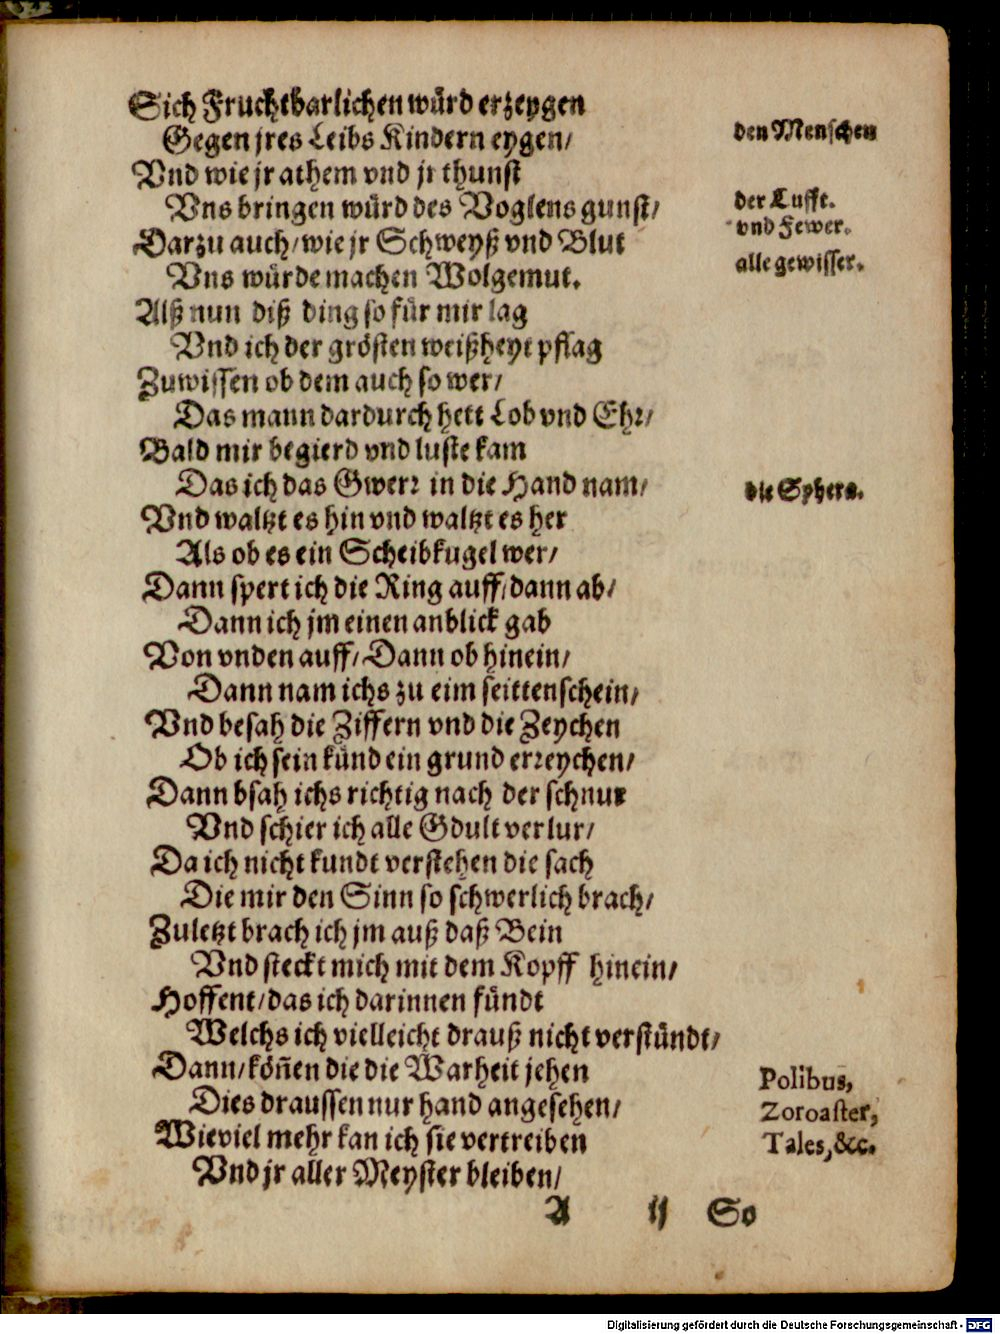 Sich Fruchtbarlichen würd erzeygen
Gegen jres Leibs Kindern eygen/
den Menschen
Vnd wie jr athem vnd jr thunst
Vns bringen würd des Voglens gunst/
der Lufft.
Darzu auch/wie jr Schweyß vnd Blut
vnd Fewer.
Vns würde machen Wolgemut.
alle gewisser.
Alß nun diß ding so für mir lag
Vnd ich der grösten weißheyt pflag
Zuwissen ob dem auch so wer/
Das mann dardurch hett Lob vnd Ehr/
Bald mir begierd vnd luste kam
Das ich das Gwerr in die Hand nam/
die Sphera.
Vnd waltzt es hin vnd waltzt es her
Als ob es ein Scheibkugel wer/
Dann spert ich die Ring auff/dann ab/
Dann ich jm einen anblick gab
Von vnden auff/Dann ob hinein/
Dann nam ichs zu eim seittenschein/
Vnd besah die Ziffern vnd die Zeychen
Ob ich sein künd ein grund erreychen/
Dann bsah ichs richtig nach der schnur
Vnd schier ich alle Gdult verlur/
Da ich nicht kundt verstehen die sach
Die mir den Sinn so schwerlich brach/
Zuletzt brach ich jm auß daß Bein
Vnd steckt mich mit dem Kopff hinein/
Hoffent/das ich darinnen fündt
Welchs ich vielleicht drauß nicht verstündt/
Dann/köñen die die Warheit jehen
Polibus,
Dies draussen nur hand angesehen/
Zoroaster,
Wieviel mehr kan ich sie vertreiben
Tales,&c.
Vnd jr aller Meyster bleiben/
A ij So
Digitalisierung gefördert durch die Deutsche Forschungsgemeinschaft - DFG